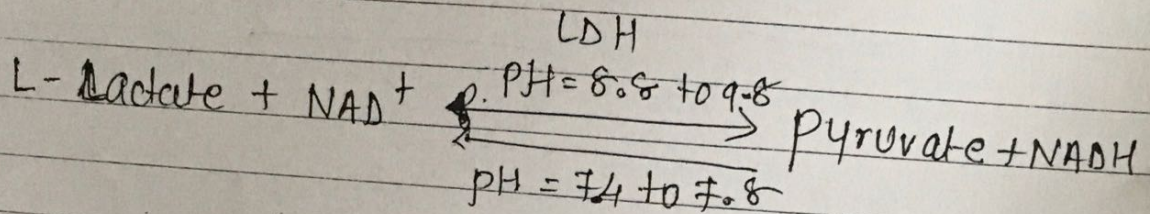 LDH
L-Lactate + NAD+ PH = 8.8 to 9.8 Pyruvate + NADH
pH = 7.4 to 7.8